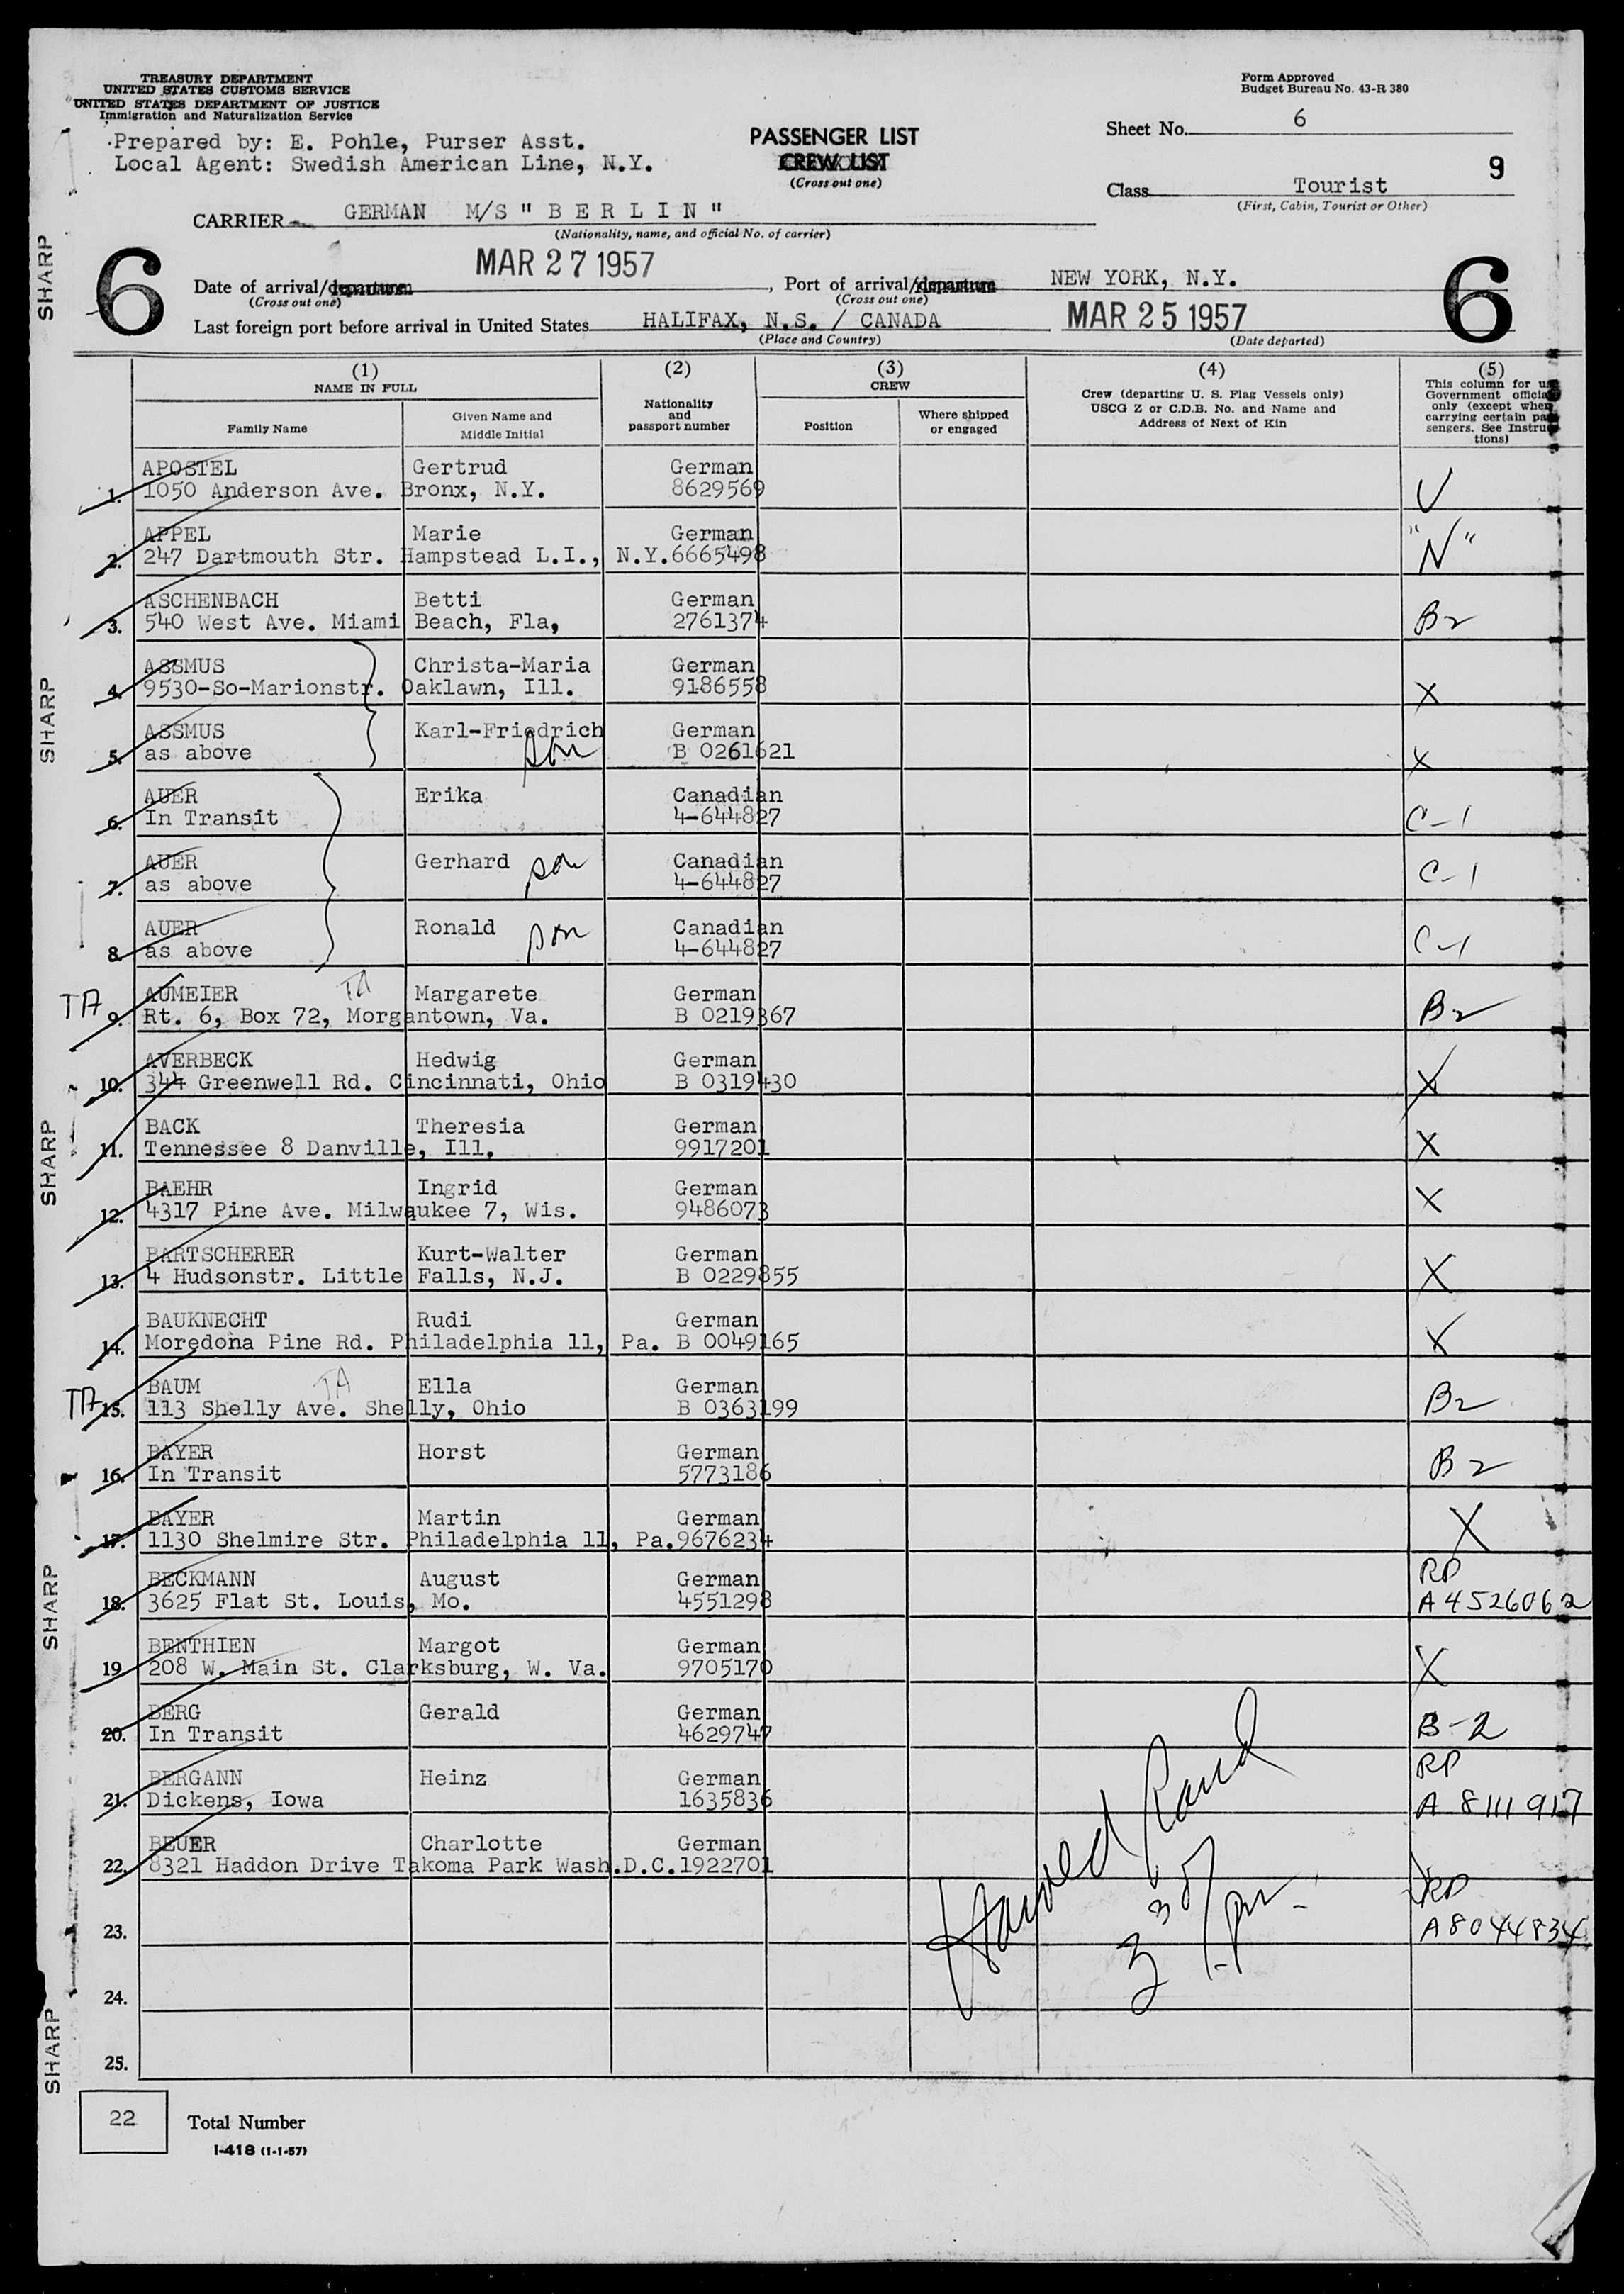 TREASURY DEPARTMENT
UNITED STATES CUSTOMS SERVICE
UNITED STATES DEPARTMENT OF JUSTICE
Immigration and Naturalization Service
Form Approved
Budget Bureau No. 43-R 380
Prepared by: E. Pohle, Purser Asst.
Local Agent: Swedish American Line, N.Y.
PASSENGER LIST
CREW LIST
(Cross out one)
Sheet No. 6
9
Class Tourist
(First, Cabin, Tourist or Other)
CARRIER GERMAN M/S " B E R L I N "
(Nationality, name, and official No. of carrier)
6
6
Date of arrival/departure MAR 27 1957, Port of arrival/departure NEW YORK, N.Y.
(Cross out one) (Cross out one)
Last foreign port before arrival in United States HALIFAX, N.S. / CANADA MAR 25 1957
(Place and Country) (Date departed)
(1) (2) (3) (4) (5)
NAME IN FULL
Family Name
Given Name and
Middle Initial
Nationality
and
passport number
CREW
Position
Where shipped
or engaged
Crew (departing U. S. Flag Vessels only)
USCG Z or C.D.B. No. and Name and
Address of Next of Kin
This column for use
Government official
only (except when
carrying certain pas
sengers. See Instruc
tions)
APOSTEL Gertrud German
1. 1050 Anderson Ave. Bronx, N.Y. 8629569 V
APPEL Marie German
2. 247 Dartmouth Str. Hampstead L.I., N.Y. 6665498 "N"
ASCHENBACH Betti German
3. 540 West Ave. Miami Beach, Fla, 2761374 B2
ASSMUS Christa-Maria German
4. 9530-So-Marionstr. Oaklawn, Ill. 9186558 X
ASSMUS Karl-Friedrich German
5. as above son B 0261621 X
AUER Erika Canadian
6. In Transit 4-644827 C-1
AUER Gerhard son Canadian
7. as above 4-644827 C-1
AUER Ronald son Canadian
8. as above 4-644827 C-1
TA AUMEIER TA Margarete German
9. Rt. 6, Box 72, Morgantown, Va. B 0219367 B2
AVERBECK Hedwig German
10. 344 Greenwell Rd. Cincinnati, Ohio B 0319430 X
BACK Theresia German
11. Tennessee 8 Danville, Ill. 9917201 X
BAEHR Ingrid German
12. 4317 Pine Ave. Milwaukee 7, Wis. 9486073 X
BARTSCHERER Kurt-Walter German
13. 4 Hudsonstr. Little Falls, N.J. B 0229855 X
BAUKNECHT Rudi German
14. Moredona Pine Rd. Philadelphia 11, Pa. B 0049165 X
TA BAUM TA Ella German
15. 113 Shelly Ave. Shelly, Ohio B 0363199 B2
BAYER Horst German
16. In Transit 5773186 B2
BAYER Martin German
17. 1130 Shelmire Str. Philadelphia 11, Pa. 9676234 X
BECKMANN August German RP
18. 3625 Flat St. Louis, Mo. 4551298 A4526062
BENTHIEN Margot German
19 208 W. Main St. Clarksburg, W. Va. 9705170 X
BERG Gerald German
20. In Transit 4629747 B-2
BERGANN Heinz German RP
21. Dickens, Iowa 1635836 A 8111917
BEUER Charlotte German
22. 8321 Haddon Drive Takoma Park Wash.D.C. 1922701 RP
23. A8044834
Harold Rand
3 30/pm
24.
25.
22 Total Number
I-418 (1-1-57)
SHARP
SHARP
SHARP
SHARP
SHARP